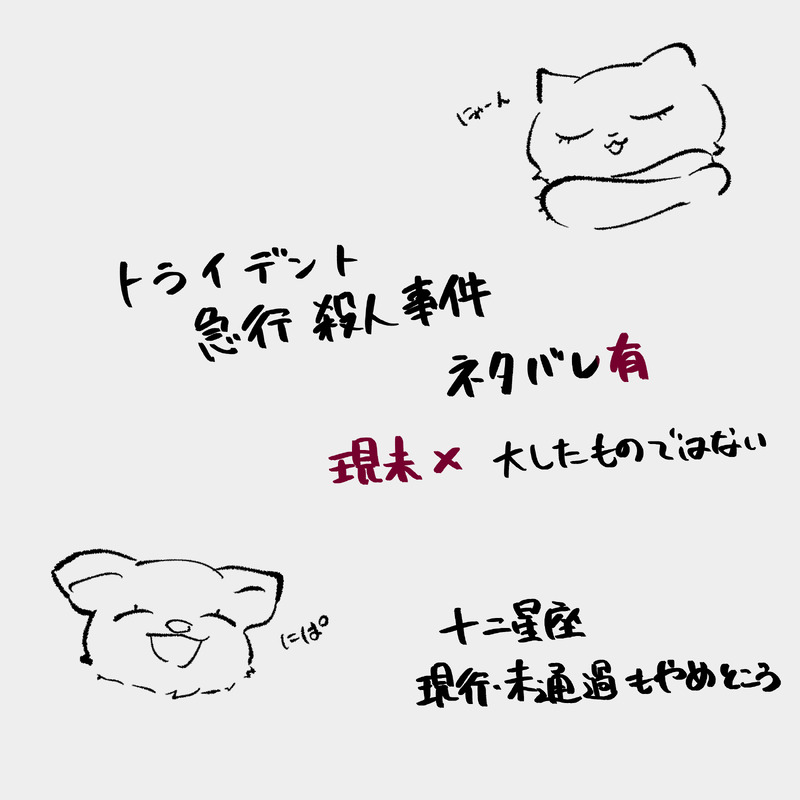 にゃーん
トライデント
急行 殺人事件
ネタバレ有
現未× 大したものではない
にぱ°
十二星座
現行・未通過もやめとこう